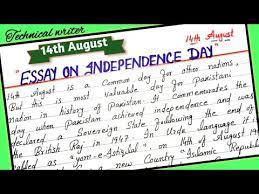 Technical writer
14th August
14th August
"ESSAY ON INDEPENDENCE DAY"
14th August is a Common day for other nations,
But this is most Valuable day for Pakistani
nation in history of Pakistan. It Commemorates the
day when Pakistan achieved independence and was
declared a Sovereign State following the end of
the British Raj in 1947. In Urdu language it is
called as "yom-e-Istiqlal". on 14th of August 19
new Country "Islamic Republi